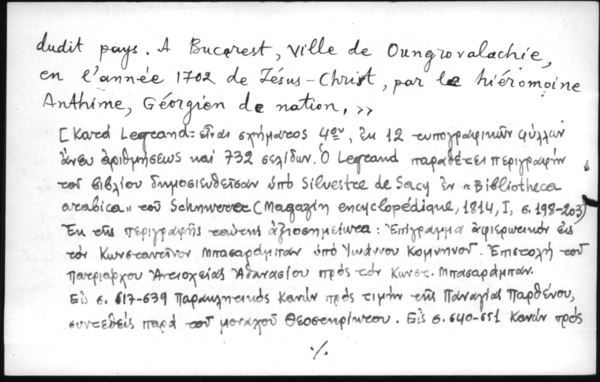 dudit pays. A Bucarest, ville de Oungrovalachie,
en l'année 1702 de Jésus-Christ, par le hiéromoine
Anthime, Géorgien de nation, »
[Κατά Legrand: εἶναι σχήματος 4ου, ἐκ 12 τυπογραφικῶν φύλλων
ἄνευ ἀριθμήσεως καί 732 σελίδων. Ὁ Legrand παραθέτει περιγραφήν
τοῦ βιβλίου δημοσιευθεῖσαν ὑπό Silvestre de Sacy ἐν «Bibliotheca
arabica» τοῦ Schnurrer (Magazin encyclopédique, 1814, I, σ. 198-203)
Ἐκ τῆς περιγραφῆς ταύτης ἀξιοσημείωτα: Ἐπίγραμμα ἀφιερωτικόν εἰς
τόν Κωνσταντῖνον Μπασαράμπαν ὑπό Ἰωάννου Κομνηνοῦ. Ἐπιστολή τοῦ
πατριάρχου Ἀντιοχείας Ἀθανασίου πρός τόν Κωνστ. Μπασαράμπαν.
Εἰς σ. 617-639 Παρακλητικός Κανών πρός τιμήν τῆς Παναγίας Παρθένου,
συντεθείς παρά τοῦ μοναχοῦ Θεοστηρίκτου. Εἰς σ. 640-651 Κανών πρός
./.